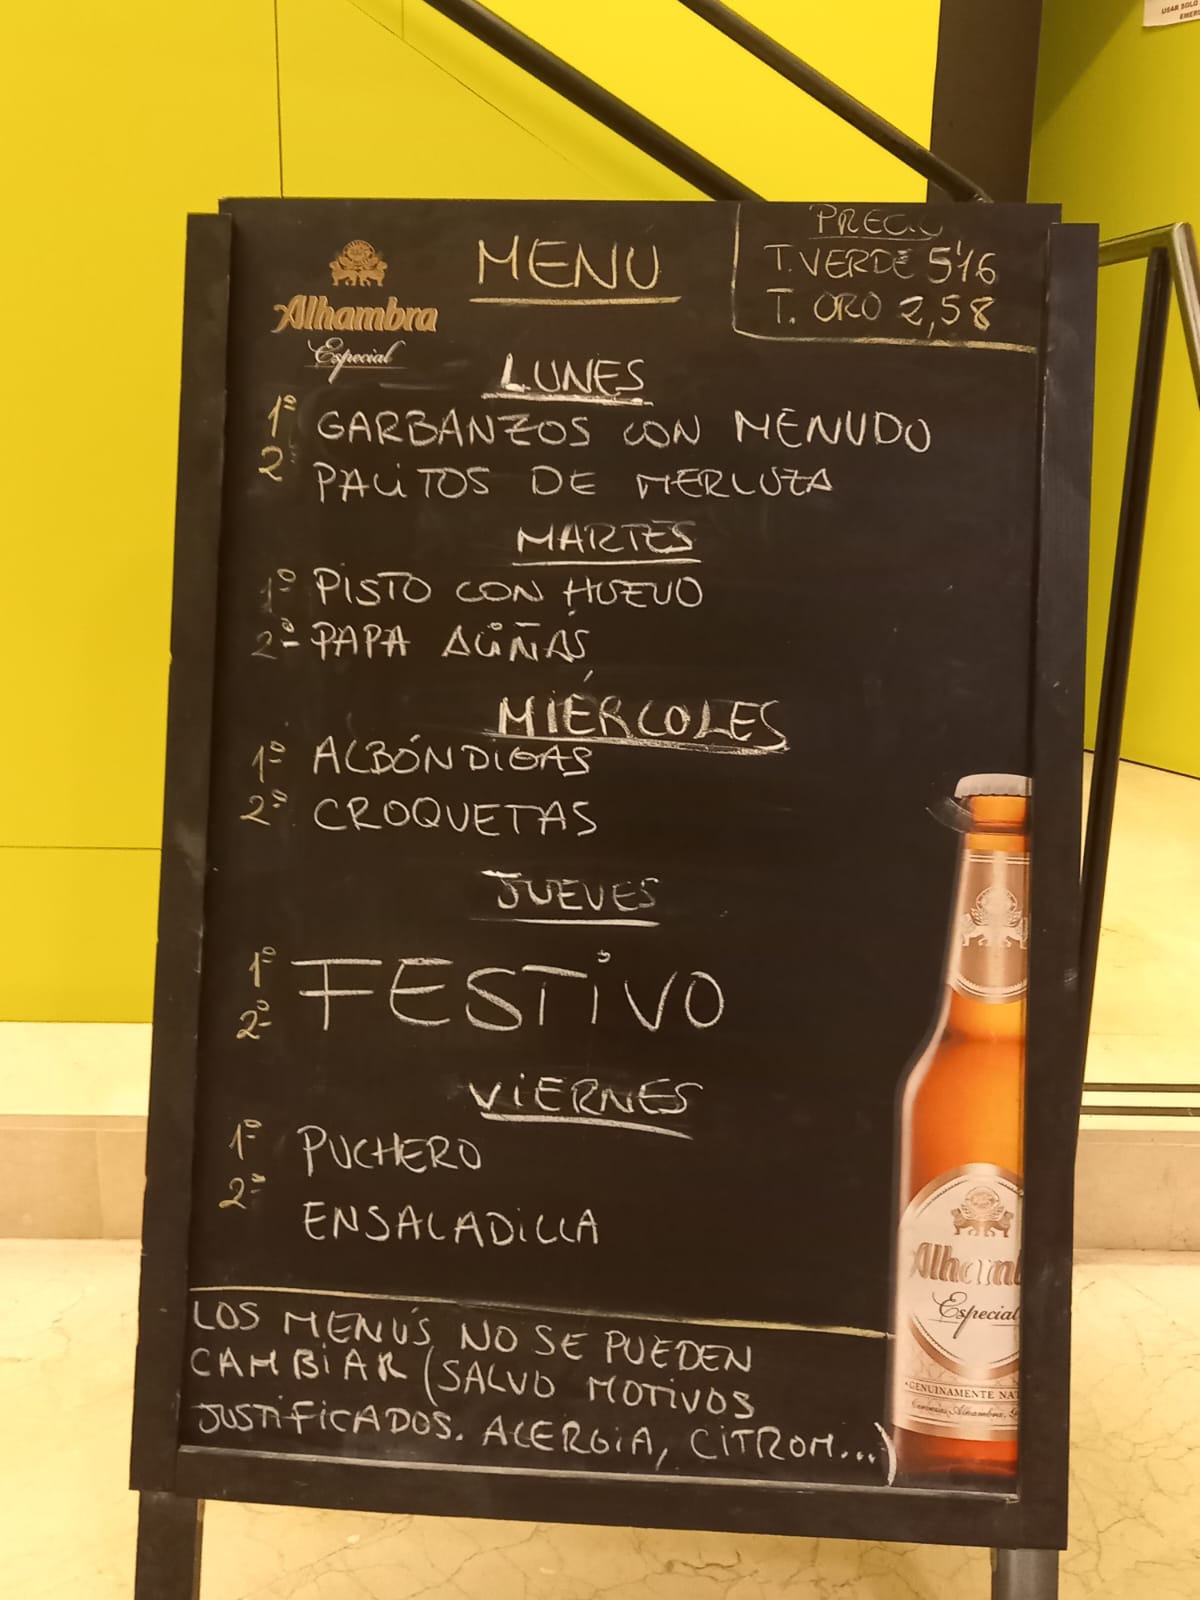 USAR SOLO
MENU
PRECIO
T. VERDE 5'16
T. ORO 2,58
Alhambra
Especial
LUNES
1º GARBANZOS CON MENUDO
2 PALITOS DE MERLUZA
MARTES
1º PISTO CON HUEVO
2º PAPA ALIÑÁS
MIÉRCOLES
1º ALBÓNDIGAS
2º CROQUETAS
JUEVES
1º FESTIVO
2º
VIERNES
1º PUCHERO
2º ENSALADILLA
LOS MENÚS NO SE PUEDEN
CAMBIAR (SALVO MOTIVOS
JUSTIFICADOS. ALERGIA, CITROM...)
Alhamb
Especial
GENUINAMENTE NA
Cervezas Alhambra, G